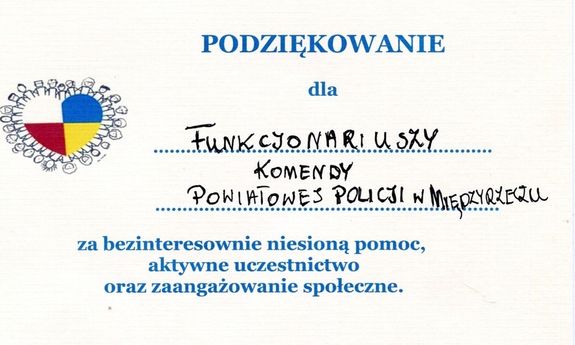 PODZIĘKOWANIE
dla
FUNKCJONARIUSZY
KOMENDY
POWIATOWEJ POLICJI W MIĘDZYRZECZU
za bezinteresownie niesioną pomoc,
aktywne uczestnictwo
oraz zaangażowanie społeczne.